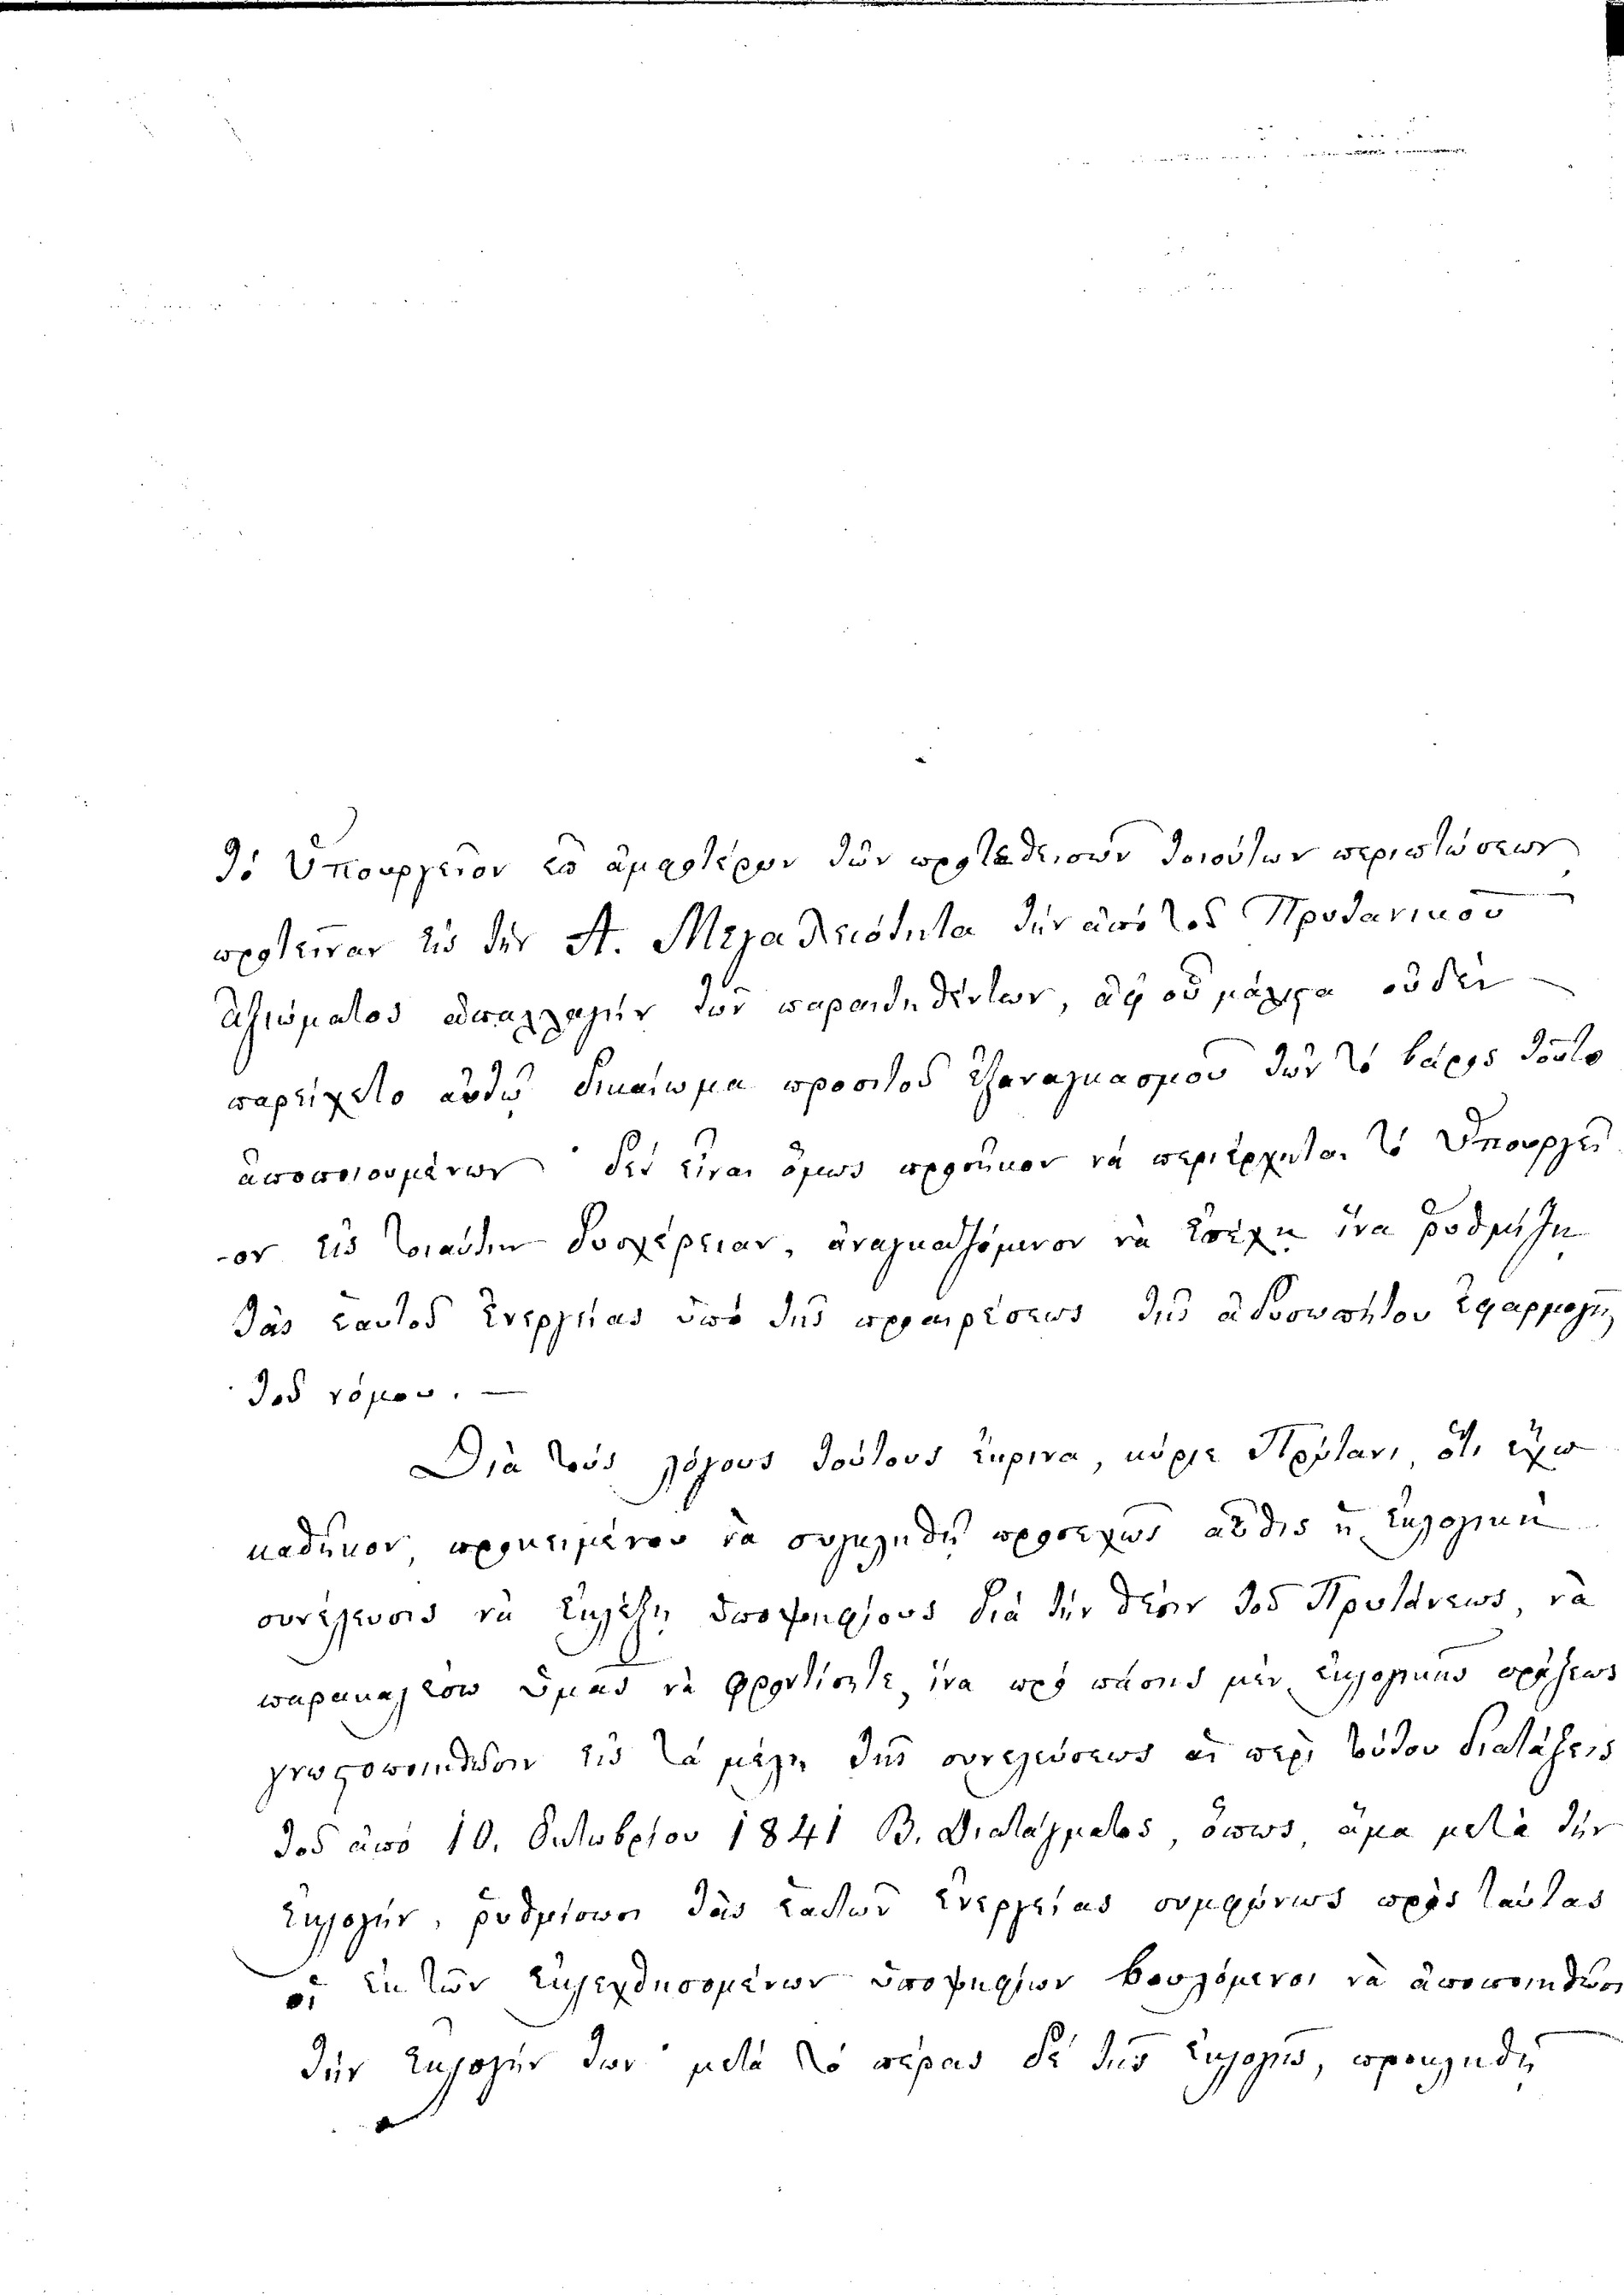 Τὸ Ὑπουργεῖον ἐπ' ἀμφοτέρων τῶν προτεθεισῶν τοιούτων περιπτώσεων
προέτεινεν εἰς τὴν Α. Μεγαλειότητα τὴν ἀπὸ τοῦ Πρυτανικοῦ
ἀξιώματος ἀπαλλαγὴν τῶν παραιτηθέντων, ἀφ' οὗ μάλιστα οὐδὲν
παρείχετο αὐτῷ δικαίωμα πρὸς τοῦ ἐξαναγκασμοῦ τῶν τὸ βάρος τοῦτο
ἀποποιουμένων· δὲν εἶναι ὅμως προσῆκον νὰ περιέρχηται τὸ Ὑπουργεῖ
-ον εἰς τοιαύτην δυσχέρειαν, ἀναγκαζόμενον νὰ ἵνα ῥυθμίζῃ
τὰς ἑαυτοῦ ἐνεργείας ὑπὸ τῆς προαιρέσεως τῆς ἀδυσωπήτου ἐφαρμογῆς
τοῦ νόμου. —
Διὰ τοὺς λόγους τούτους ἔκρινα, κύριε Πρύτανι, ὅτι ἔχω
καθῆκον, προκειμένου νὰ συγκληθῇ προσεχῶς αὖθις ἡ ἐκλογικὴ
συνέλευσις νὰ ἐκλέξῃ ὑποψηφίους διὰ τὴν θέσιν τοῦ Πρυτάνεως, νὰ
παρακαλέσω ὑμᾶς νὰ φροντίσητε, ἵνα πρὸ πάσης μὲν ἐκλογικῆς πράξεως
γνωστοποιηθῶσιν εἰς τὰ μέλη τῆς συνελεύσεως αἱ περὶ τούτου διατάξεις
τοῦ ἀπὸ 10. Ὀκτωβρίου 1841 Β. Διατάγματος, ὅπως, ἅμα μετὰ τὴν
ἐκλογήν, ῥυθμίσωσι τὰς ἑαυτῶν ἐνεργείας συμφώνως πρὸς ταύτας
οἱ ἐκ τῶν ἐκλεχθησομένων ὑποψηφίων βουλόμενοι νὰ ἀποποιηθῶσι
τὴν ἐκλογήν των· μετὰ τὸ πέρας δὲ τῆς ἐκλογῆς, προσκληθῇ